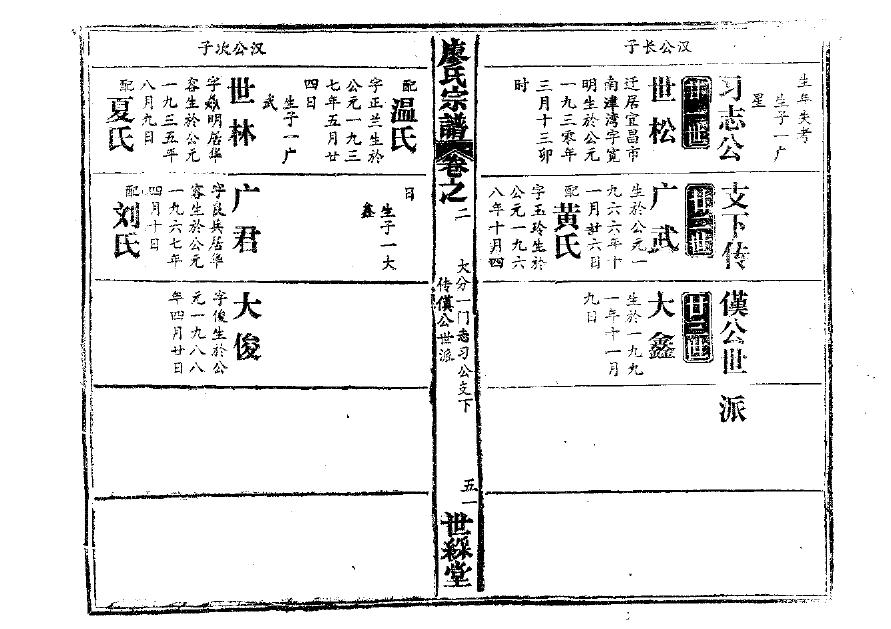 汉公长子
生年失考
生子一广
星
习志公
世松
迁居宜昌市
南津湾字宽
明生於公元
一九三零年
三月十三卯
时
支下传
廿二世
广武
生於公元一
九六六年十
一月廿六日
配
黄氏
字玉玲生於
公元一九六
八年十月四
僕公世派
廿三世
大鑫
生於一九九
一年十一月
九日
廖氏宗譜
卷之二
大分一门志习公支下
传僕公世派
五一
世綵堂
汉公次子
配
温氏
字正兰生於
公元一九三
七年五月廿
四日
生子一广
武
世林
明居华
容生於公元
一九三五年
八月九日
配
夏氏
日
生子一大
鑫
广君
字良兵居华
容生於公元
一九六七年
四月十日
配
刘氏
大俊
字俊生於公
元一九八八
年四月廿日